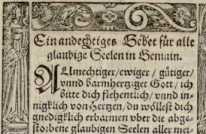 Ein andechtiges Gebet für alle
glaubige Seelen in Gemain.
ALlmechtiger/ ewiger/ gütiger/
vnnd barmhertziger Gott/ ich
bitte dich flehentlich/ vnnd in-
nigklich von Hertzen/ du wöllest dich
gnedigklich erbarmen vber die abge-
storbene glaubigen Seelen aller